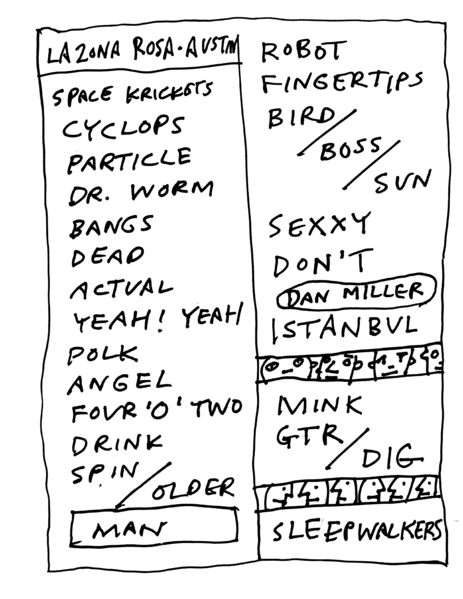 LA ZONA ROSA·AUSTIN
SPACE KRICKETS
CYCLOPS
PARTICLE
DR. WORM
BANGS
DEAD
ACTUAL
YEAH! YEAH
POLK
ANGEL
FOUR 'O' TWO
DRINK
SPIN
/OLDER
MAN
ROBOT
FINGERTIPS
BIRD/
BOSS/
SUN
SEXXY
DON'T
DAN MILLER
ISTANBUL
MINK
GTR/
DIG
SLEEPWALKERS